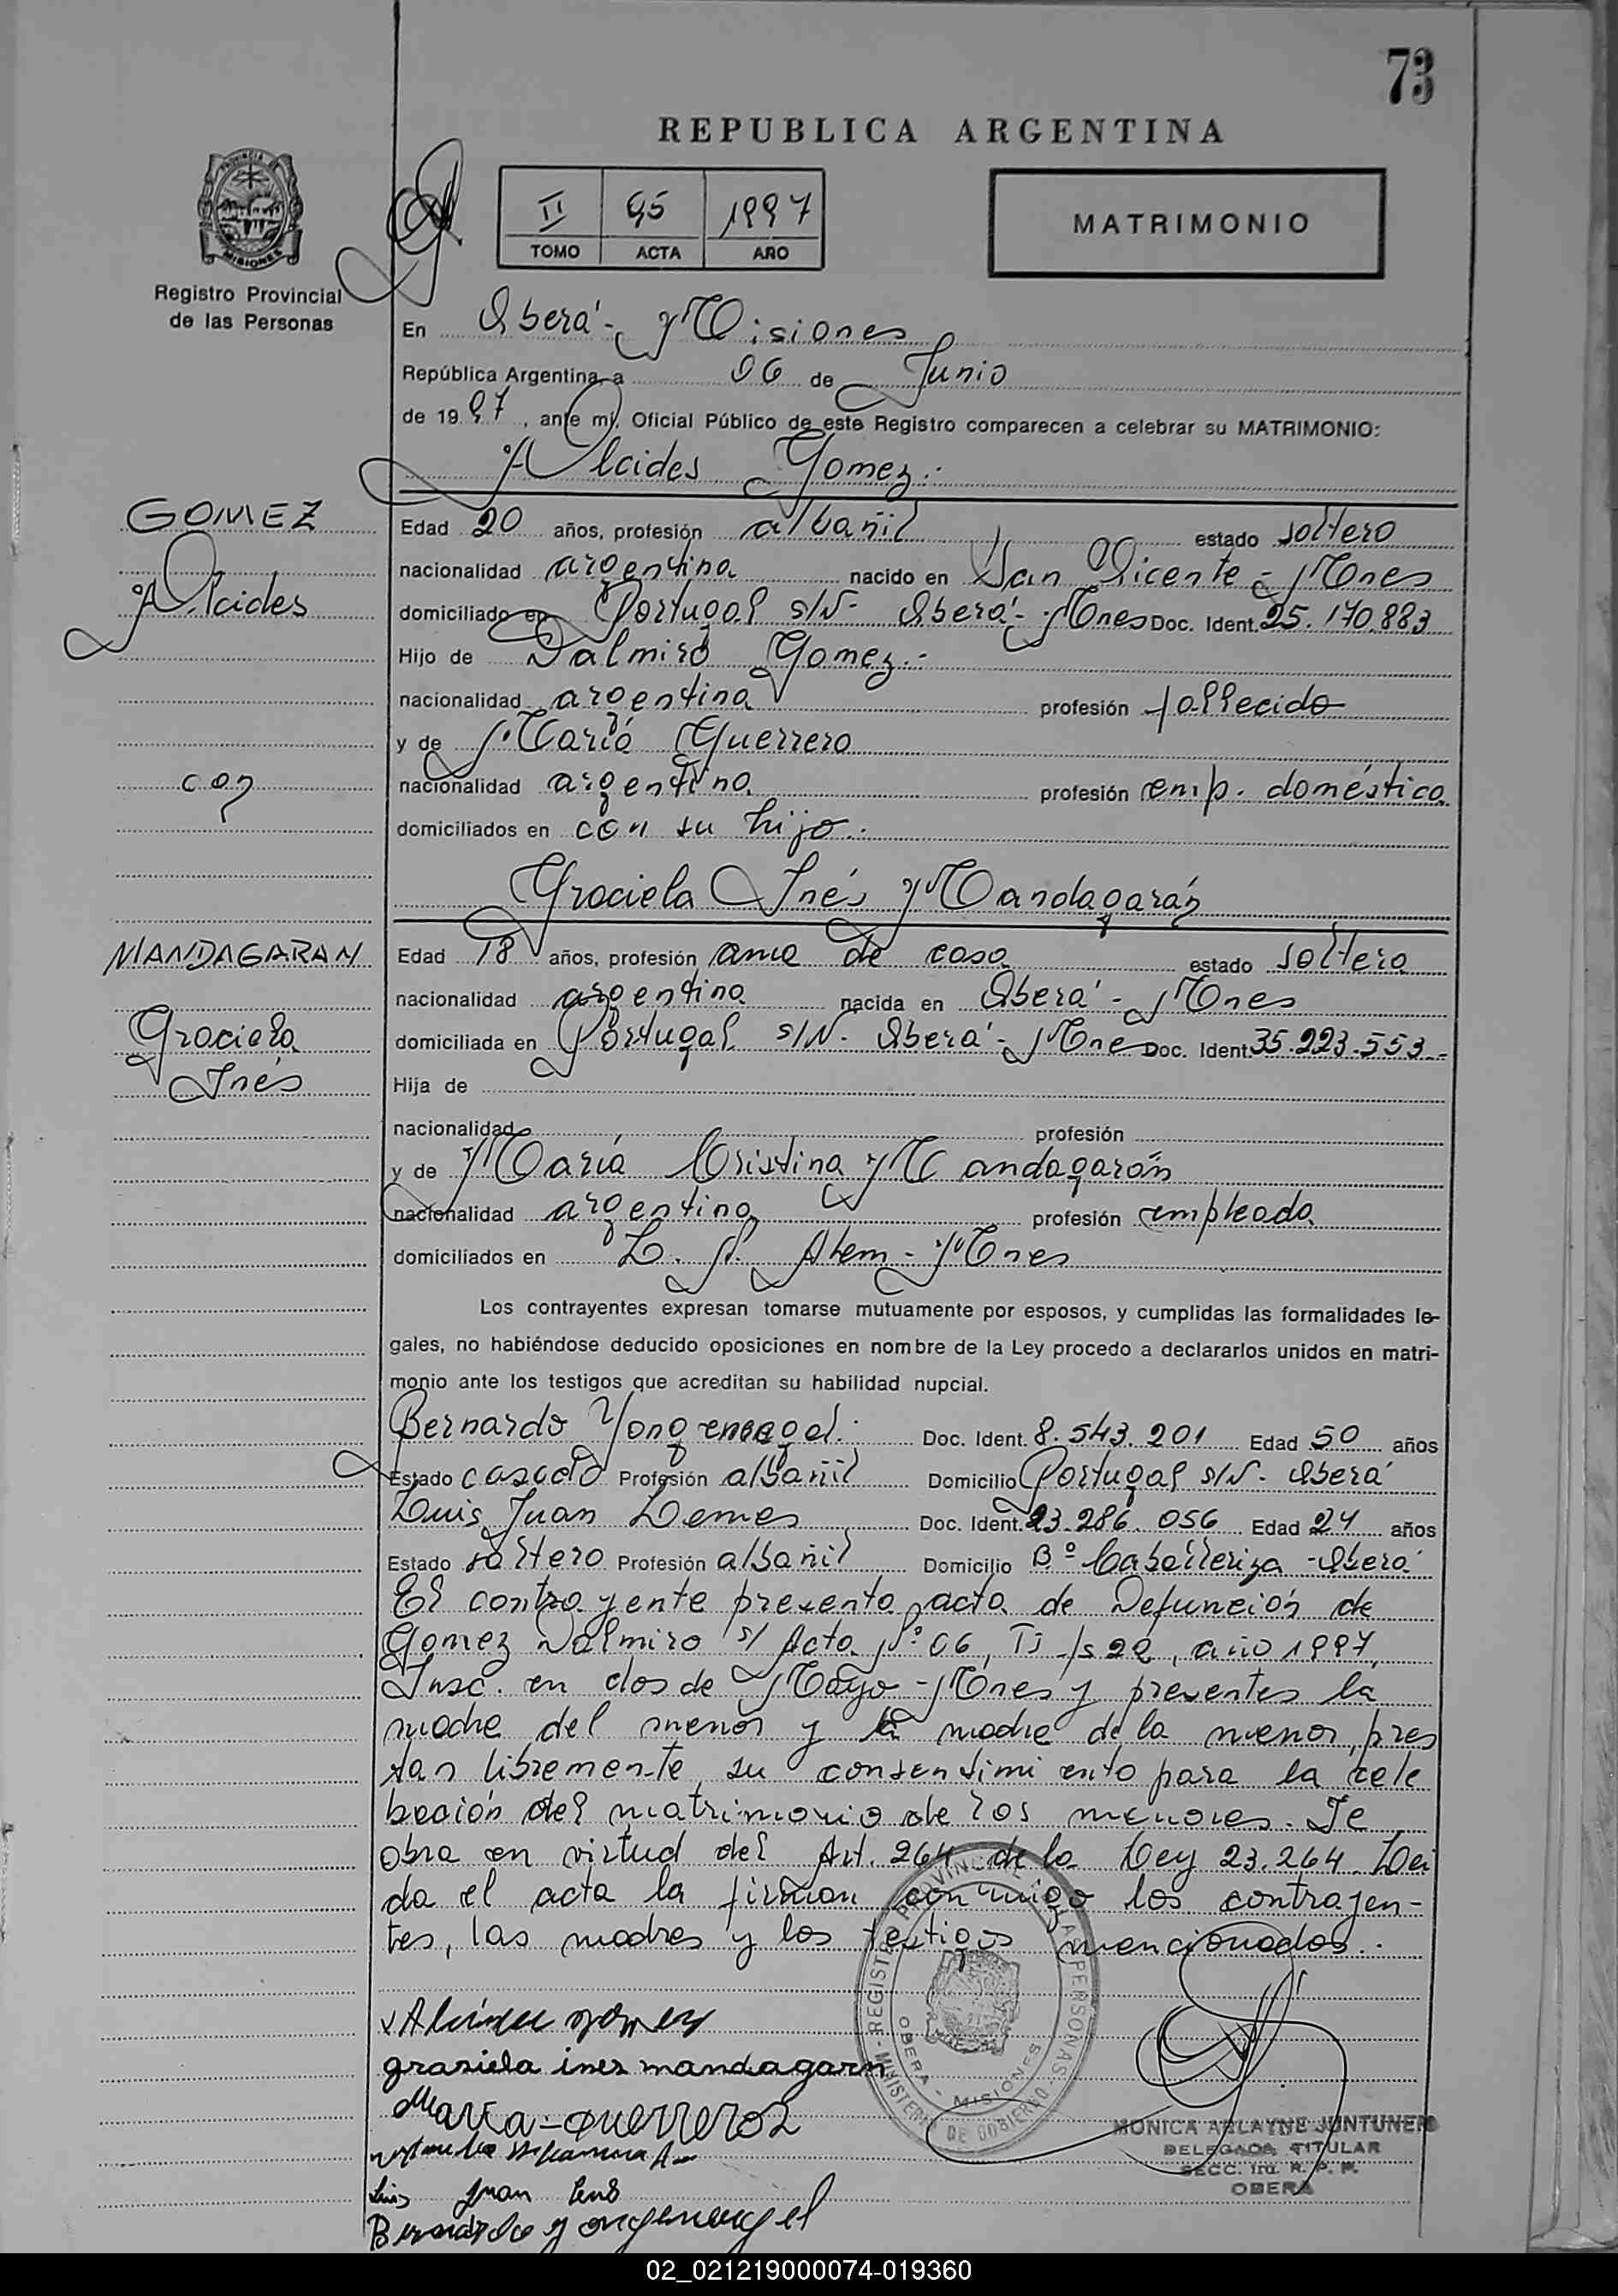 73
REPUBLICA ARGENTINA
PROVINCIA DE MISIONES
II 95 1997
TOMO ACTA AÑO
MATRIMONIO
Registro Provincial
de las Personas
En Oberá - Misiones
República Argentina, a 06 de Junio
de 1997, ante mí, Oficial Público de este Registro comparecen a celebrar su MATRIMONIO:
Alcides Gomez.-
GOMEZ
Edad 20 años, profesión albañil estado soltero
nacionalidad argentina nacido en San Vicente - Mnes
Alcides
domiciliado en Portugal s/N- Oberá - Mnes Doc. Ident. 25.170.883
Hijo de Dalmiro Gomez.-
nacionalidad argentina profesión fallecido
y de María Guerrero
con
nacionalidad argentina profesión emp. doméstica
domiciliados en con su hijo.-
Graciela Inés Mandagarán
MANDAGARAN
Edad 18 años, profesión ama de casa estado soltera
nacionalidad argentina nacida en Oberá - Mnes
Graciela
domiciliada en Portugal s/N- Oberá - Mnes Doc. Ident. 35.223.553.-
Inés
Hija de
nacionalidad profesión
y de María Cristina Mandagarán
nacionalidad argentina profesión empleada
domiciliados en L. N. Alem - Mnes
Los contrayentes expresan tomarse mutuamente por esposos, y cumplidas las formalidades le-
gales, no habiéndose deducido oposiciones en nombre de la Ley procedo a declararlos unidos en matri-
monio ante los testigos que acreditan su habilidad nupcial.
Bernardo Doc. Ident. 8.543.201 Edad 50 años
Estado casado Profesión albañil Domicilio Portugal s/N- Oberá
Luis Juan Lemes Doc. Ident. 23.286.056 Edad 24 años
Estado soltero Profesión albañil Domicilio Bº Caballeriza - Oberá
El contrayente presenta acta de Defunción de
Gomez Dalmiro s/ Acta Nº 06, TI fs 22, año 1997,
Insc. en dos de Mayo - Mnes y presentes la
madre del menor y la madre de la menor, pres
tan libremente su consentimiento para la cele
bración del matrimonio de los menores. Se
obra en virtud del Art. 264 de la Ley 23.264. Lei
da el acta la firman conmigo los contrayen-
tes, las madres y los testigos mencionados.-
graziela ines mandagarn
Maria - Guerreros
Luis Juan
Bernardo
REGISTRO PROVINCIAL DE LAS PERSONAS
MINISTERIO DE GOBIERNO
OBERA - MISIONES
MONICA ARLAYNE JUNTUNEN
DELEGADA TITULAR
SECC. 1ra. R. P. P.
OBERA
02_021219000074-019360